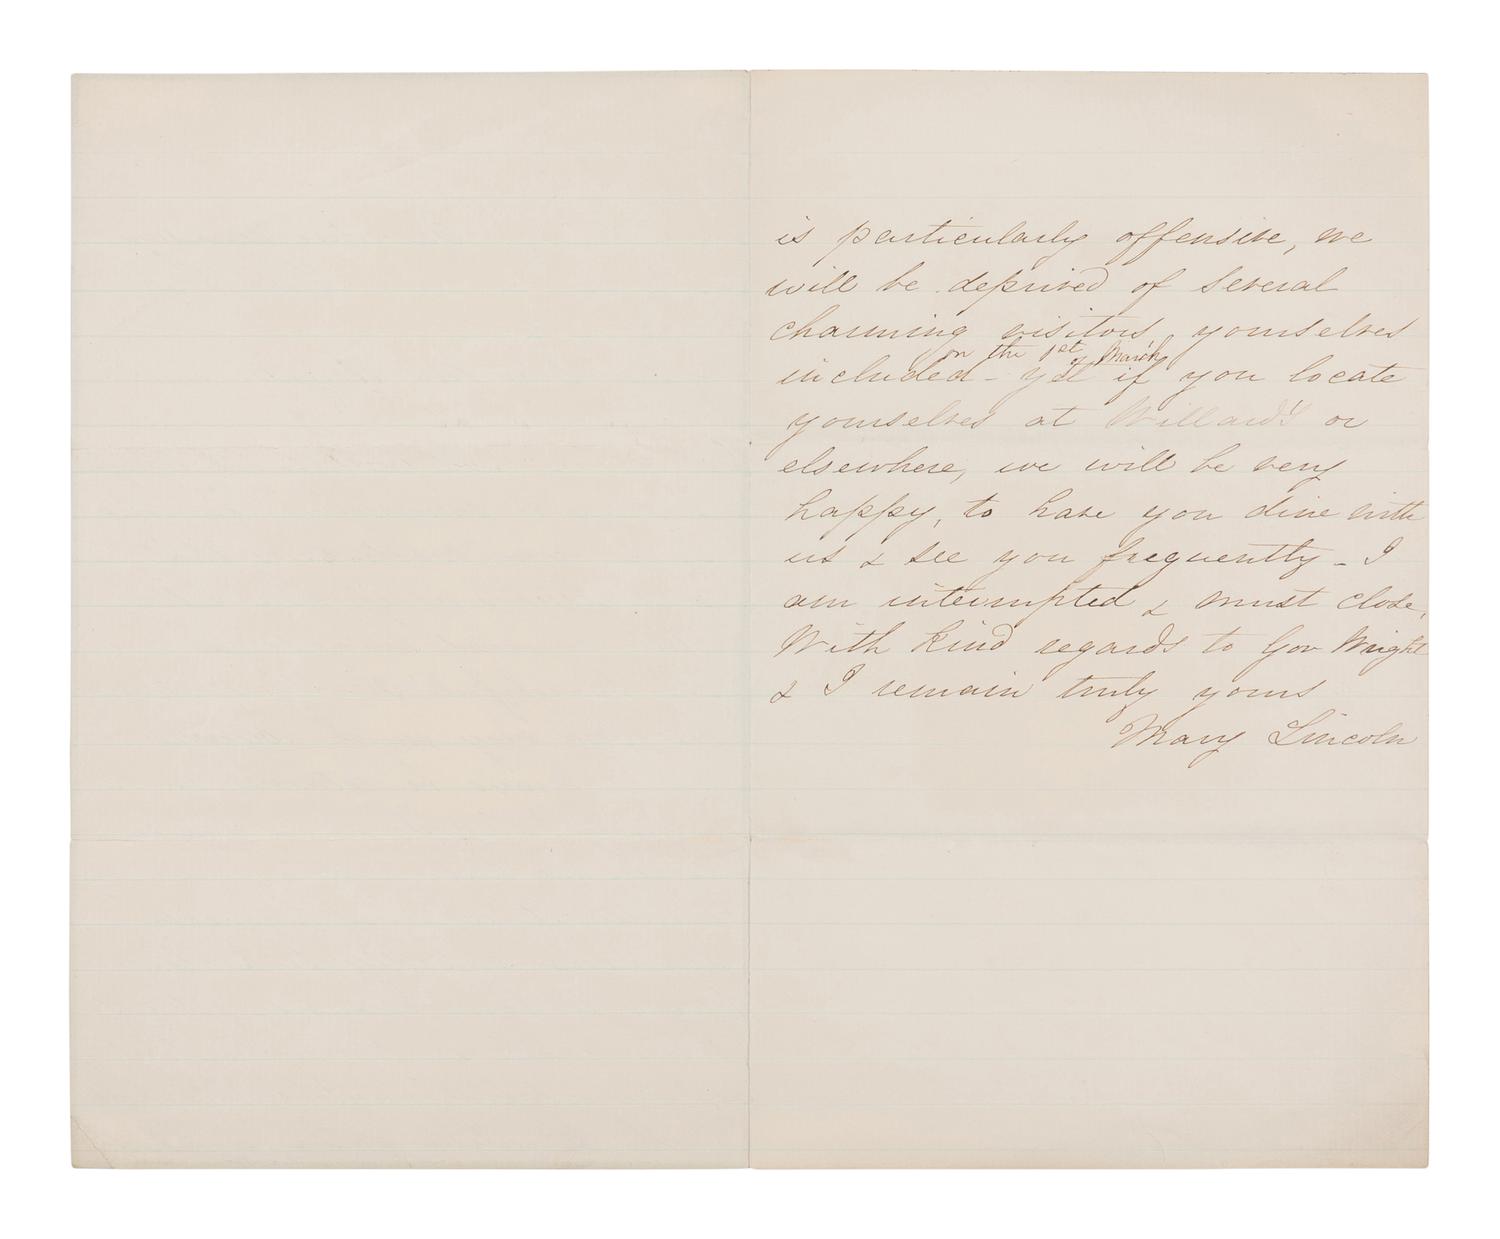 is particularly offensive, we
will be deprived of several
charming visitors, yourselves
on the 1st of March
included - yet if you locate
yourselves at Willard's or
elsewhere, we will be very
happy, to have you dine with
us & see you frequently - I
am interrupted & must close,
With kind regards to Gov Wright
& I remain truly yours
Mary Lincoln